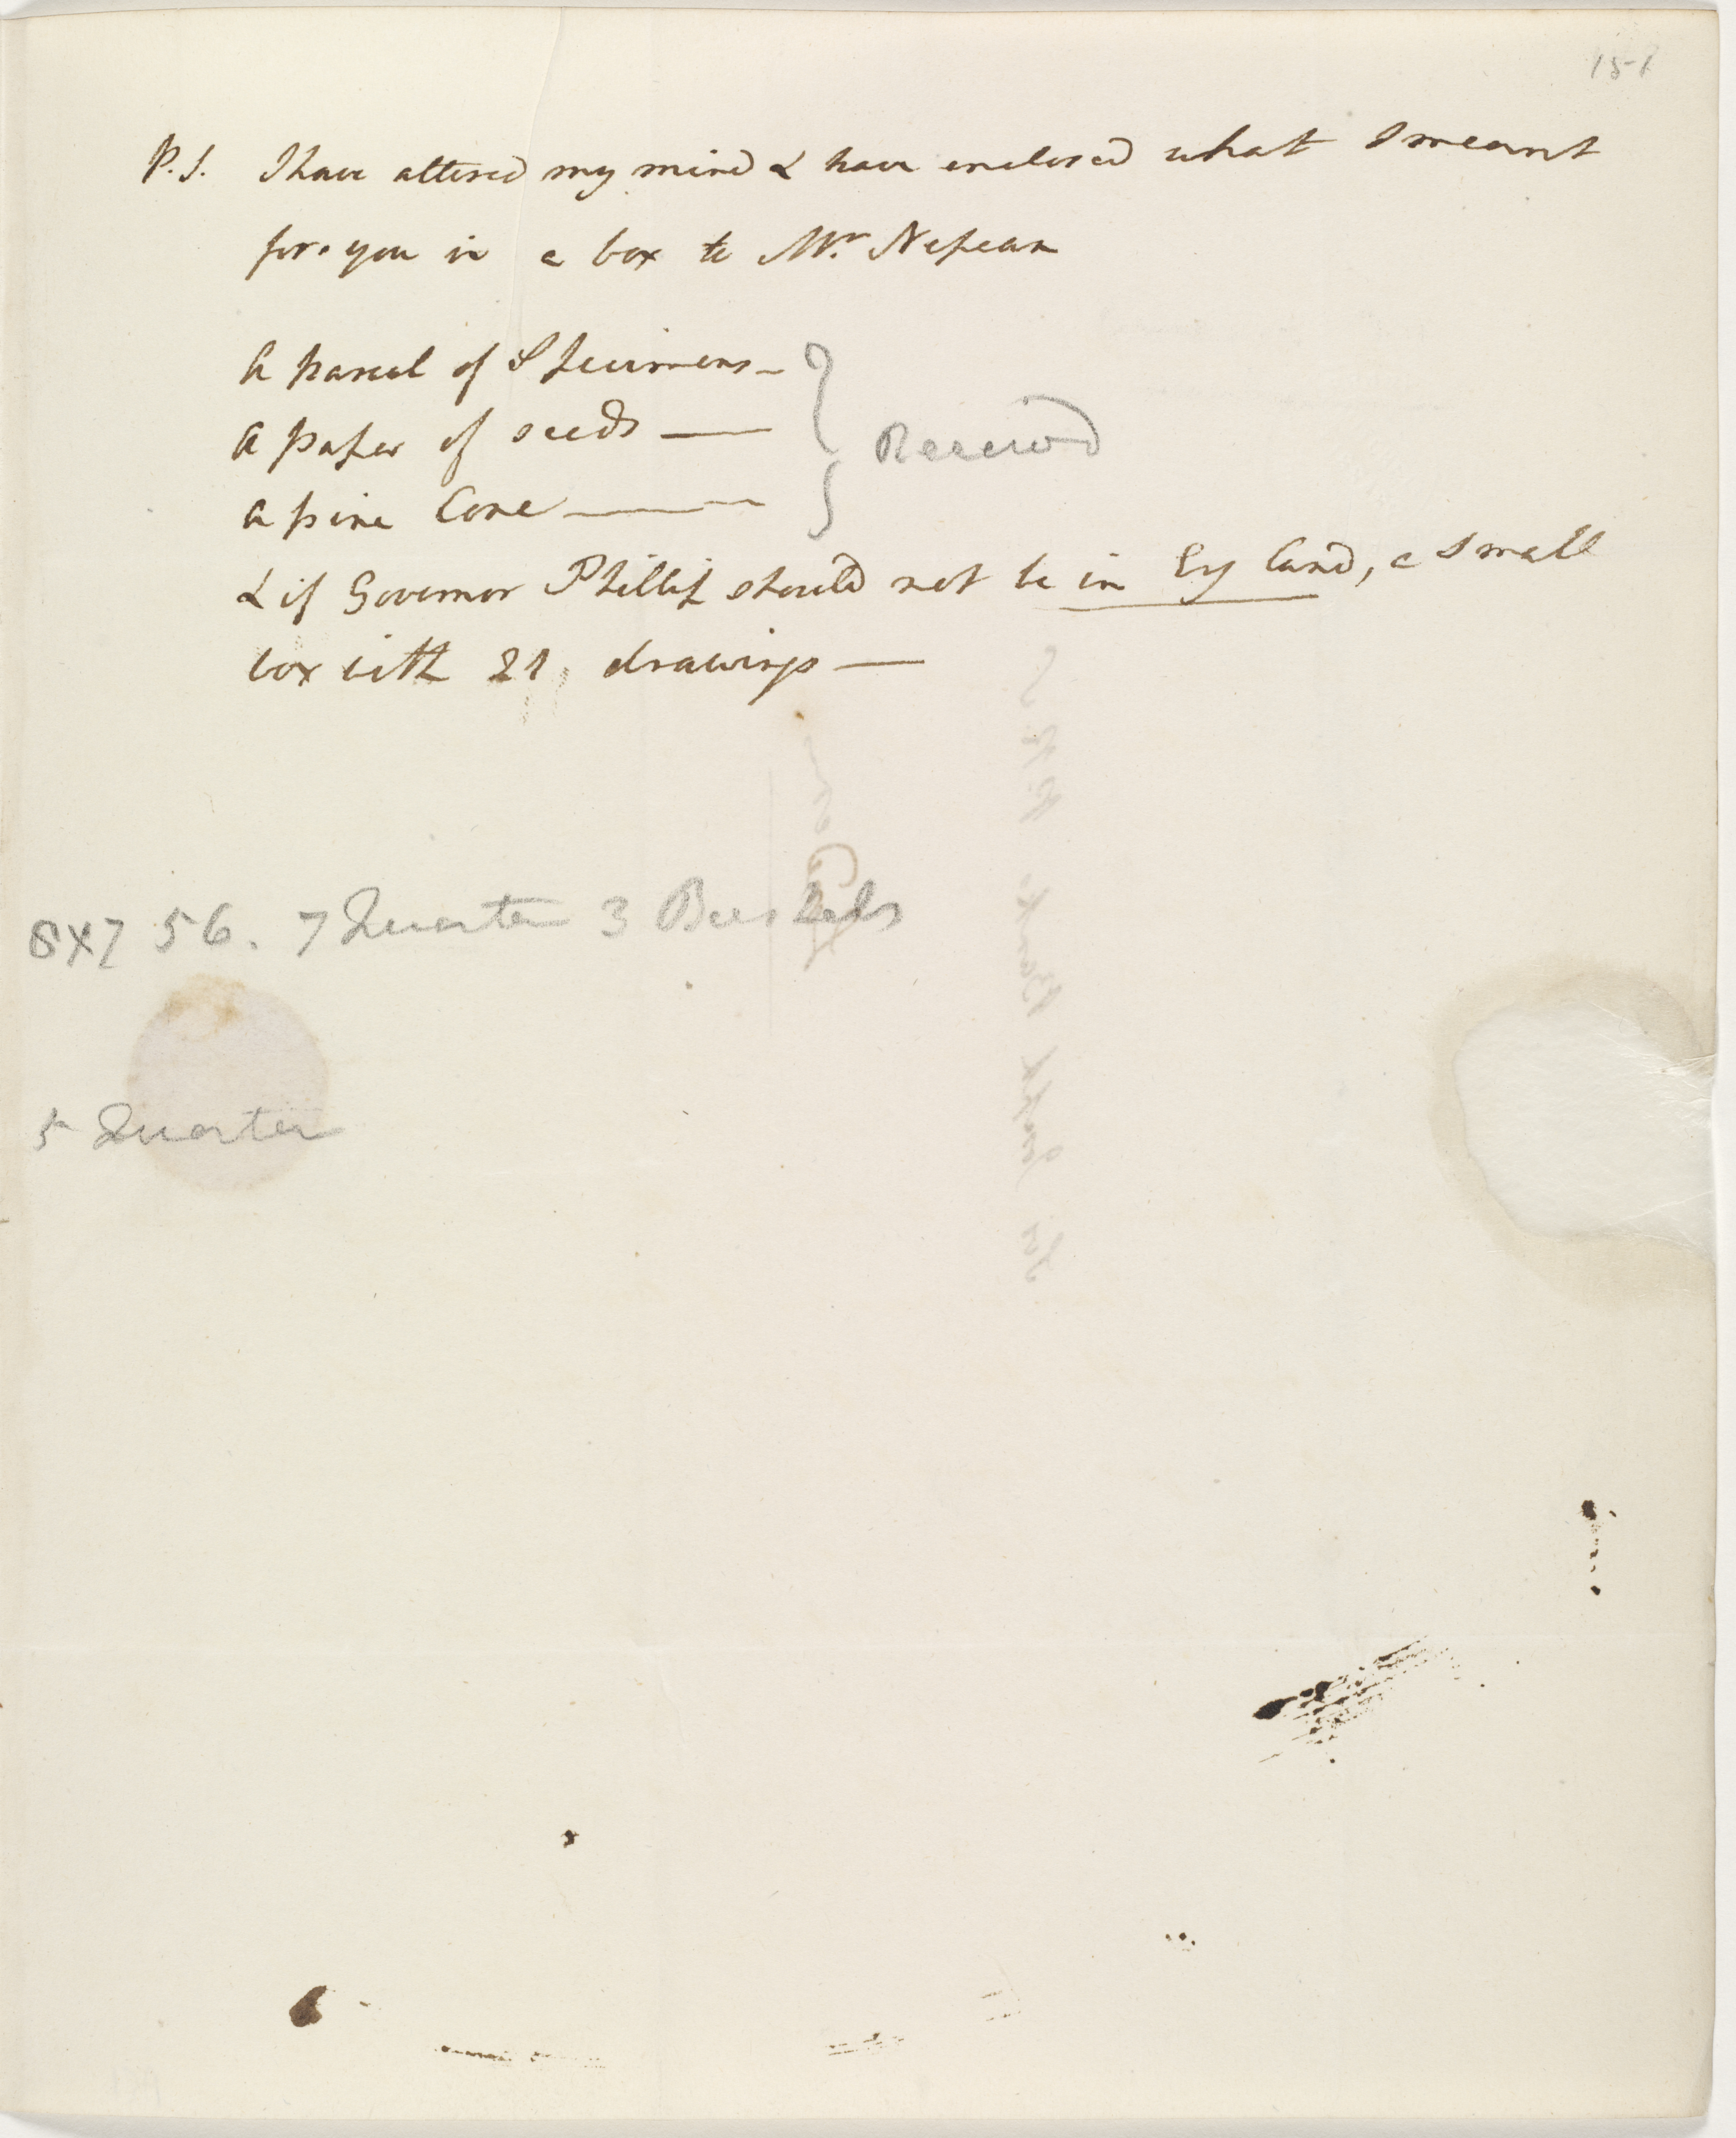 151
P.S. I have altered my mind & have enclosed what I meant
for you in a box to Mr. Nepean
A parcel of Specimens _
A paper of seeds —
A pine Cone —
Received
& if Governor Phillip should not be in England, a small
box with 21 drawings —
8x7 56. 7 Quarter 3 Bushels
5 Quarter
Sir Joseph Banks